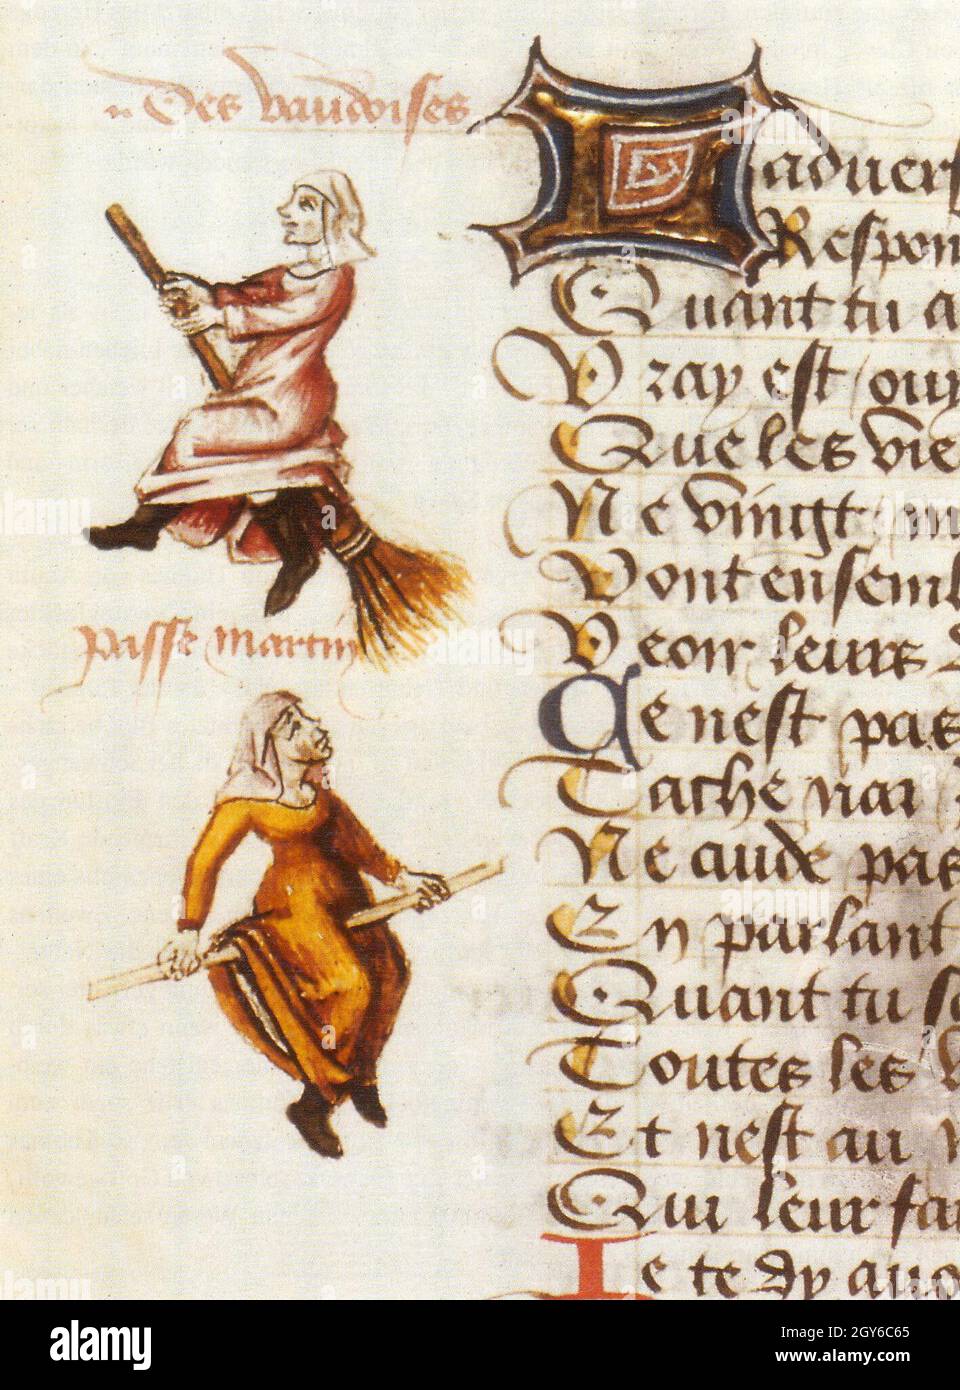 Des vaudoises
passe martin
L advers
Respon
Quant tu a
Vray est ouy
Que les vie
Ne vingt m
Vont ensembl
Veoir leurs d
Ce nest pas
Tache nai
Ne aude pas
En parlant
Quant tu
Toutes les
Et nest au
Qui leur fa
Ie te dy
a alamy
Image ID: 2GY6C65
www.alamy.com